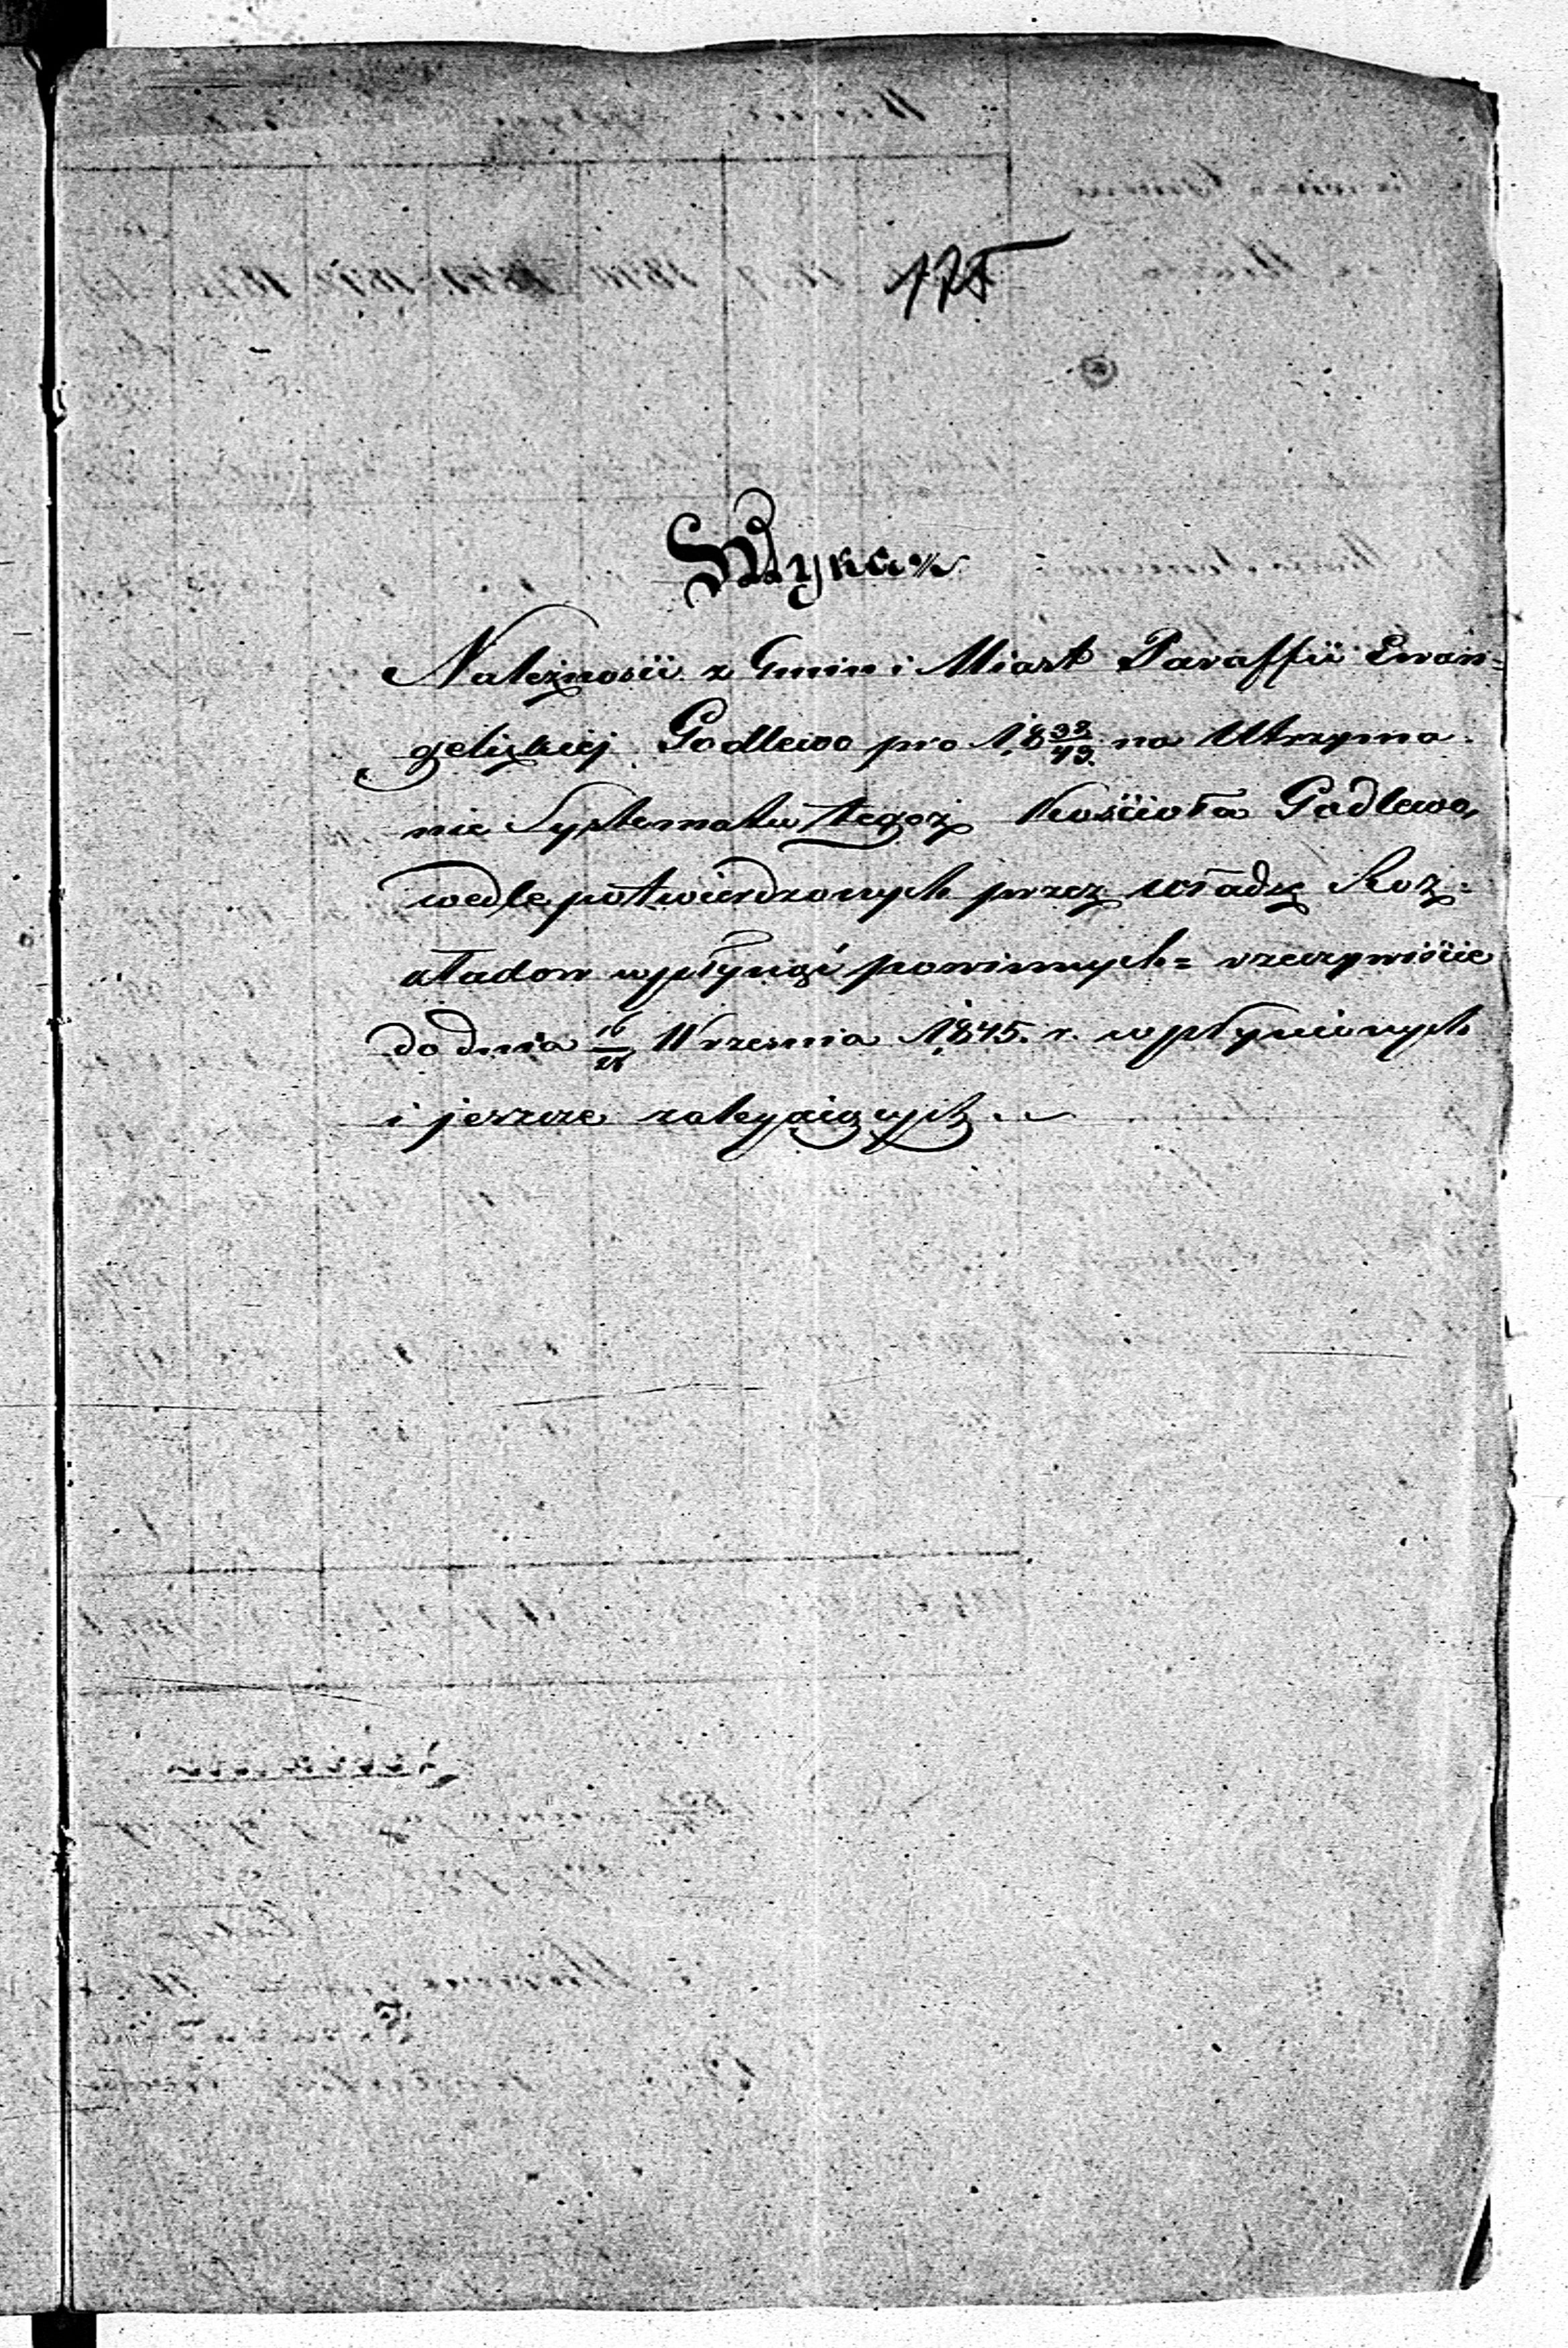 175
Wykaz
Należności z Gmin i Miast Paraffii Ewan=
gelickiej Godlewo pro 18 38/43 na Utrzyma
nie Systematu tegoż Kościoła Godlewo,
wedle potwierdzonych przez władzę Roz=
kładow wpłynąć powinnych = rzeczywiście
do dnia 16/28 Września 1845. r. wpłynionych
i jeszcze zalegaiących